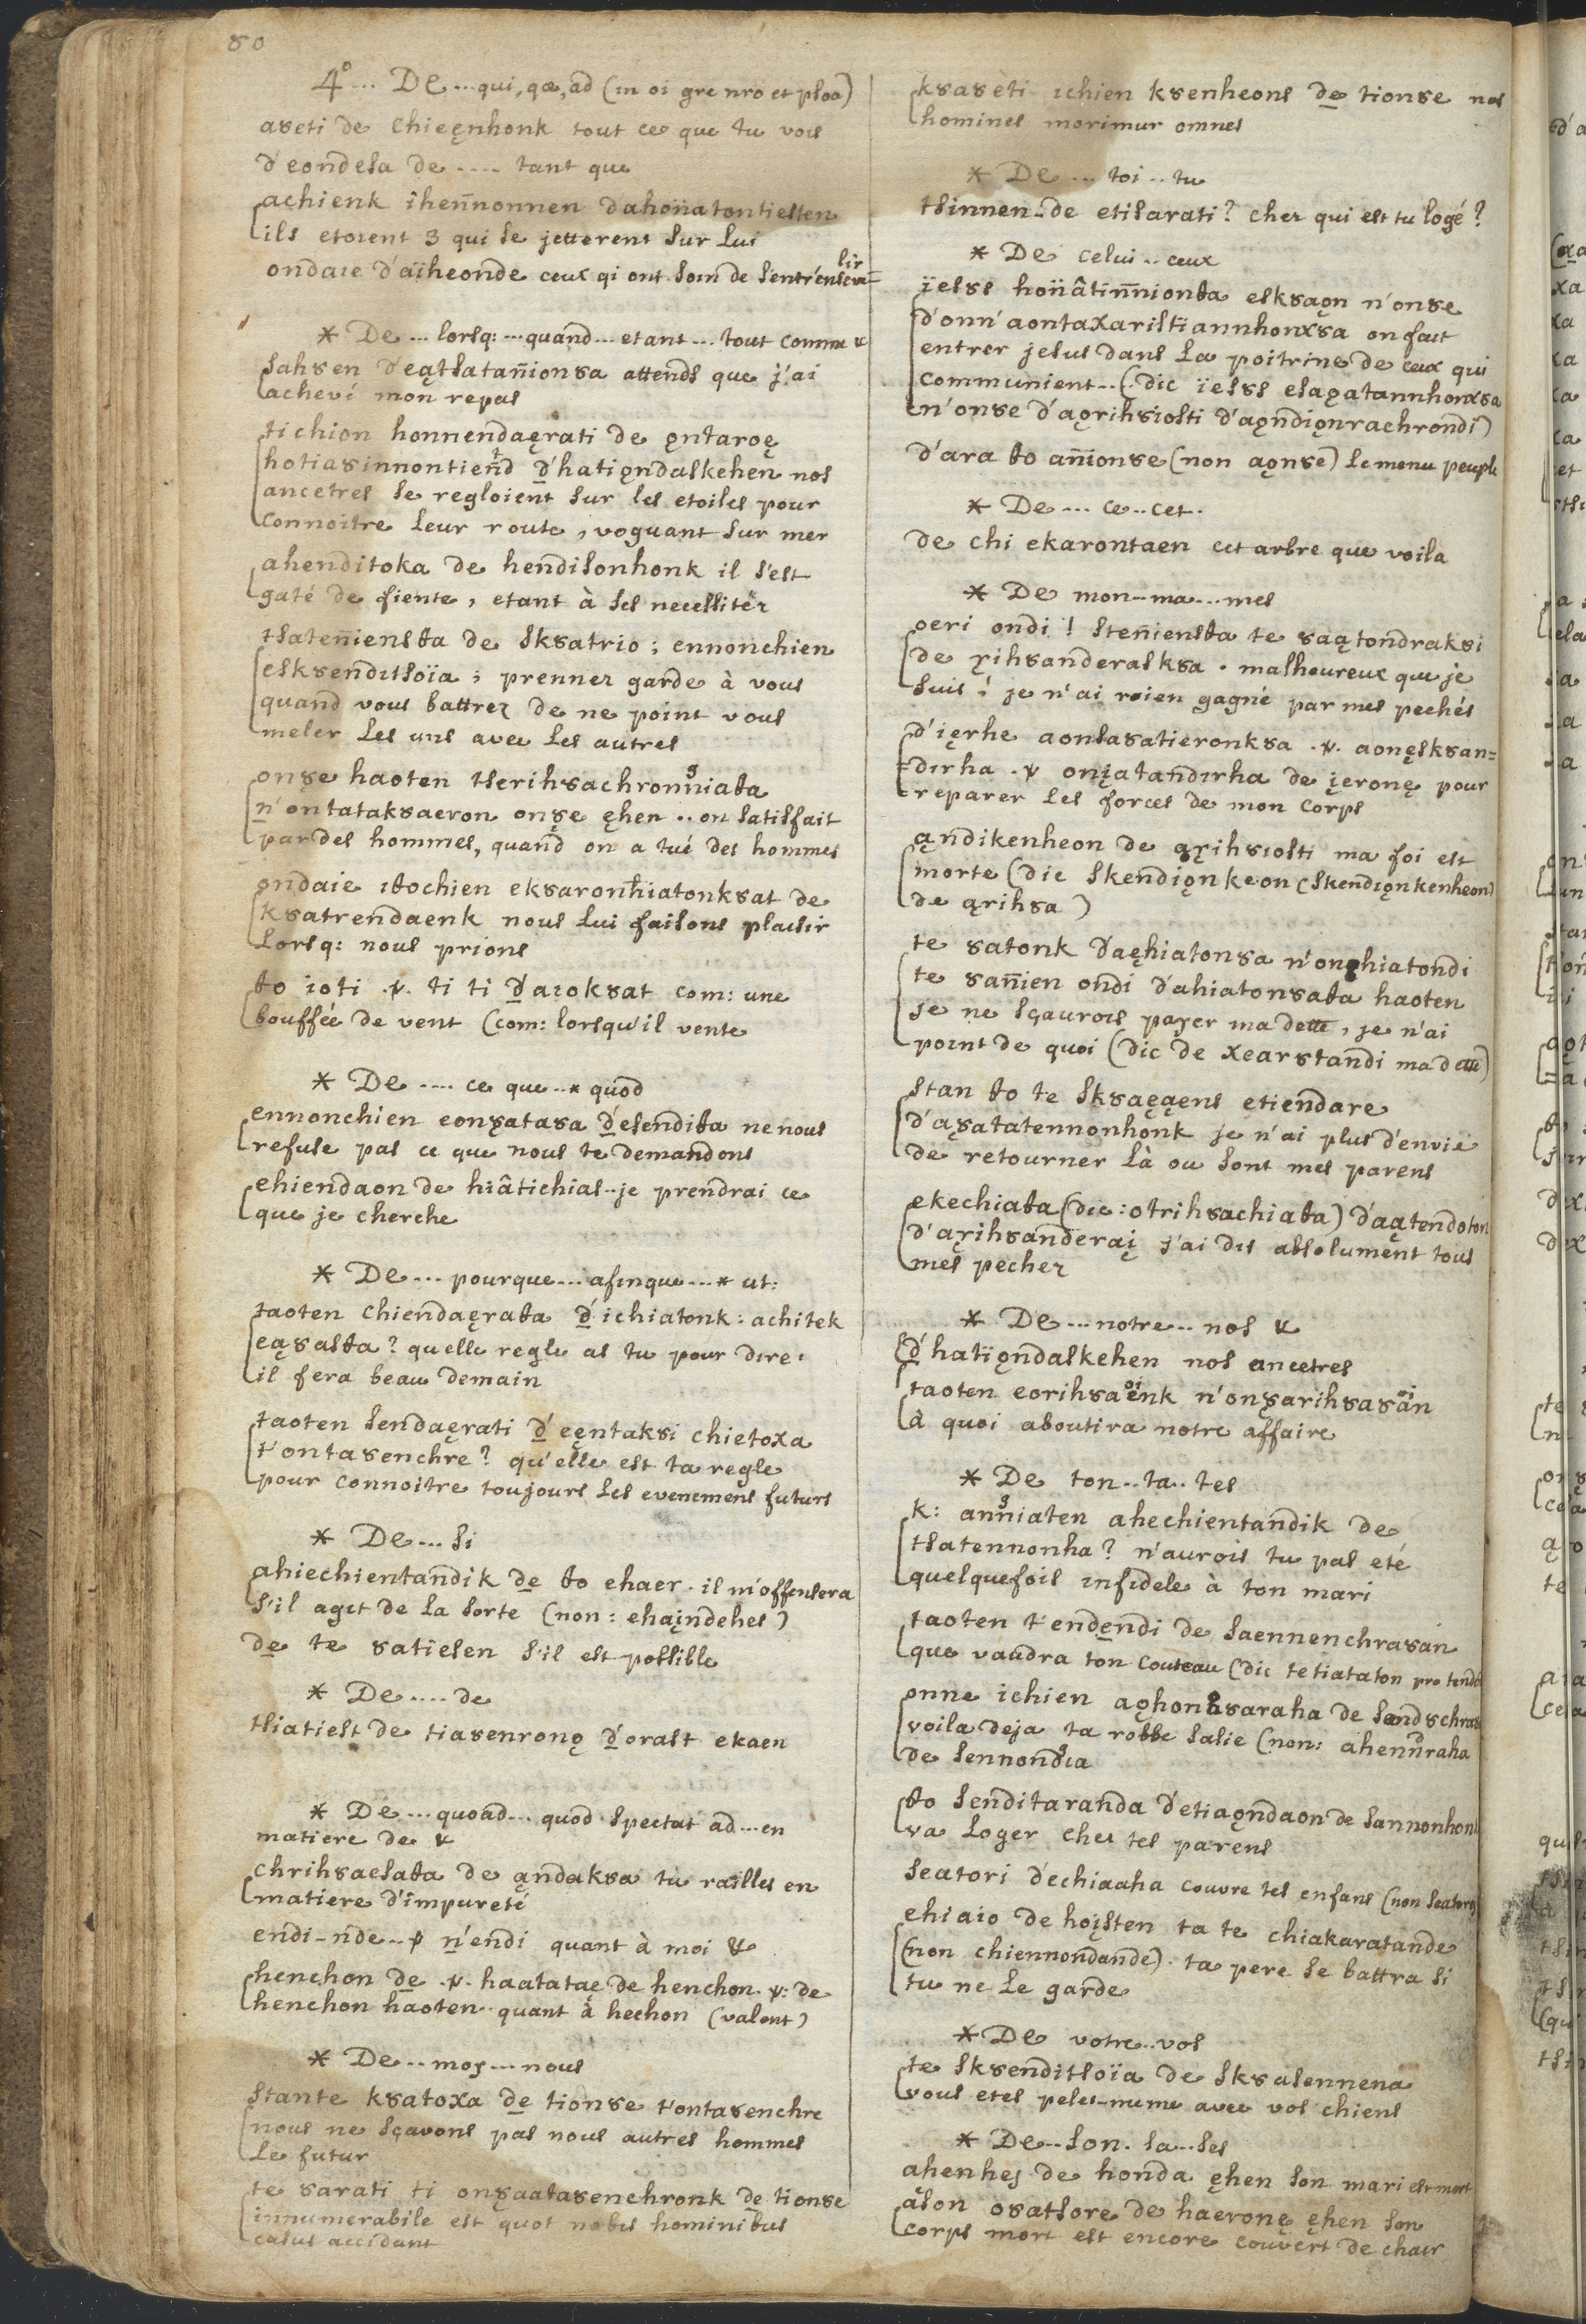 80
4° ... De ... qui, qæ, ad (in oi gre nrō et ploa)
a8eti de chieęnhonk tout ce que tu vois
d'eondesa de .... tant que
achienk ihennonnen dahoüatontiesten
ils etoient 3 qui se jetterent sur lui
ondaie d'aïheonde ceux qi ont soin de
* De ... lorsq: ... quand ... etant ... tout comme &
sah8en d'eąt8atanion8a attends que j'ai
achevé mon repas
ti chion honnendaęrati de ǫntaroę
hotia8innontiend d'hatiǫndaskehen nos
ancetres se regloient sur les etoiles pour
connoitre leur route, voguant sur mer
ahenditoka de hendisonhonk il s'est
gaté de fiente, etant à ses necessitér
tsatenienstha de sk8atrio ; ennonchien
esk8enditsoïa ; prenner garde à vous
quand vous battrez de ne point vous
meler les uns avec les autres
on8e haoten tserih8achronniatha
n'ontatak8aeron on8e ęhen .. on satisfait
par des hommes, quand on a tué des hommes
ondaie ithochien ek8aronhiatonk8at de
k8atrendaenk nous lui faisons plaisir
lorsq: nous prions
tho ioti .v. ti ti d'aiok8at com: une
bouffée de vent (com: lorsqu'il vente
* De .... ce que .. * quod
ennonchien eon8atasa d'esenditha ne nous
refuse pas ce que nous te demandons
ehiendaon de hiâtichias .. je prendrai ce
que je cherche
* De ... pourque ... afinque ... * ut:
taoten chiendaęratha d'ichiatonk : achitek
eą8astha? quelle regle as tu pour dire:
il fera beau demain
taoten sendaęrati d'eęntak8i chietoxa
t'onta8enchre? qu'elle est ta regle
pour connoitre toujours les evenemens futurs
* De ... si
ahiechientandik de tho ehaer . il m'offensera
s'il agit de la sorte (non: ehaįndehes)
de te 8atiesen s'il est possible
* De .... de
tsiatiest de tia8enronǫ d'orast ekaen
* De ... quoad ... quod spectat ad ... en
matiere de &
chrih8aesatha de ąndak8a tu railles en
matiere d'impureté
endi-nde .. v n'endi quant à moi &
henchon de .v. haatataę de henchon .v: de
henchon haoten .. quant à hechon (valent)
* De .. moy ... nous
stante k8atoxa de tion8e t'onta8enchre
nous ne sçavons pas nous autres hommes
le futur
te 8arati ti on8aata8enchronk de tion8e
innumerabile est quot nobis hominibus
casus accidant
k8a8eti ichien k8enheons de tion8e nos
homines morimur omnes
* De ... toi .. tu
tsinnen-de etisarati? cher qui est tu logé?
* De celui .. ceux
ïes8s hoüâtinniontha esk8aǫn n'on8e
d'onn'aontaxaristiannhonx8a on fait
entrer jesus dans la poitrine de ceux qui
communient .. (dic ïes8s esaǫatannhonx8a
n'on8e d'aǫrih8iosti d'aǫndiǫnrachrondi)
d'ara tho anion8e (non aǫn8e) le menu peuple
* De ... ce .. cet.
de chi ekarontaen cet arbre que voila
* De mon .. ma ... mes
oeri ondi! stenienstha te 8aątondrak8i
de ɣih8anderask8a . malheureux que je
suis! je n'ai rien gagné par mes pechés
d'ięrhe aonsa8atieronk8a .v. aonęsk8an=
=dirha .v onįatandirha de įeronę pour
reparer les forces de mon corps
ąndikenheon de ąɣih8iosti ma foi est
morte (dic skendiǫnkeon (skendiǫnkenheon)
de ąrih8a)
te 8atonk d'aęhiaton8a n'onǫhiatondi
te 8anien ondi d'ahiaton8atha haoten
je ne sçaurois payer ma dette, je n'ai
point de quoi (dic de xear8tandi ma dette)
stan tho te sk8aęąens ętiendare
d'ą8atatennonhonk je n'ai plus d'envie
de retourner là ou sont mes parens
ekechiatha (dic: otrih8achiatha) d'aątendoton
d'ąɣih8anderaį j'ai dis absolument tous
mes pecher
* De ... notre .. nos &
d'hatïǫndaskehen nos ancetres
taoten eorih8aenk n'on8arih8a8an
à quoi aboutira notre affaire
* De ton .. ta .. tes
k: anniaten ahechientandik de
tsatennonha? n'aurois tu pas eté
quelquefois infidele à ton mari
taoten t'endendi de saennenchra8an
que vaudra ton couteau (dic tetiataton pro
onne ichien aǫhon8saraha de
voila deja ta robbe salie (non: ahennraha
de sennondia
tho senditaranda d'etiaǫndaon de
va loger cher tes parens
seatori d'echiaaha couvre tes enfans (non
ehiaio de hoįsten ta te chiakaratande
(non chiennondande). ta pere se battra si
tu ne le garde
* De votre .. vos
te sk8enditsoïa de sk8asennena
vous etes peles-mume avec vos chiens
* De .. son . sa ... ses
ąhenhey de honda ęhen son mari est mort
ąson o8atsore de haeronę ęhen son
corps mort est encore couvert de chair